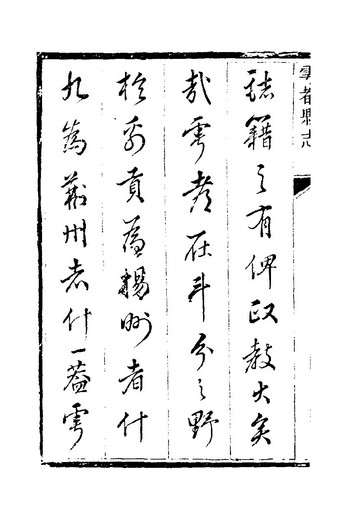 雩都縣志
誌籍之有俾政教大矣
哉雩者在斗分之野
於禹貢為揚州者什
九為荊州者什一蓋雩